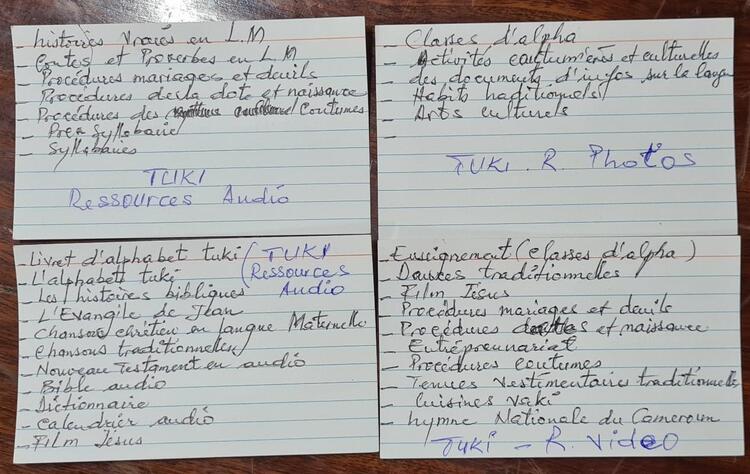 - histoires vraies en L.M
- Contes et Proverbes en L.M
- Procédures mariages et deuils
- Procédures de la dote et naissance
- Procédures des coutumes
- Pré syllabaire
- Syllabaires
TUKI
Ressources Audio
- Classes d'alpha
- Activités coutumières et culturelles
- des documents d'infos sur la langue
- Habits traditionels
- Arts culturels
-
TUKI - R. Photos
- Livret d'alphabet tuki
- L'alphabet tuki
- Les histoires bibliques
- L'Evangile de Jean
- Chansons chrétien en langue Maternelle
- Chansons traditionnelles
- Nouveau Testament en audio
- Bible audio
- Dictionnaire
- Calendrier audio
- Film Jésus
TUKI
Ressources
Audio
- Enseignement (classes d'alpha)
- Danses traditionnelles
- Film Jésus
- Procédures mariages et deuils
- Procédures et naissance
- Entrépreunariat
- Procédures coutumes
- Tenues vestimentaires traditionnelle
- Cuisines
- hymne Nationale du Cameroun
TUKI - R. Video